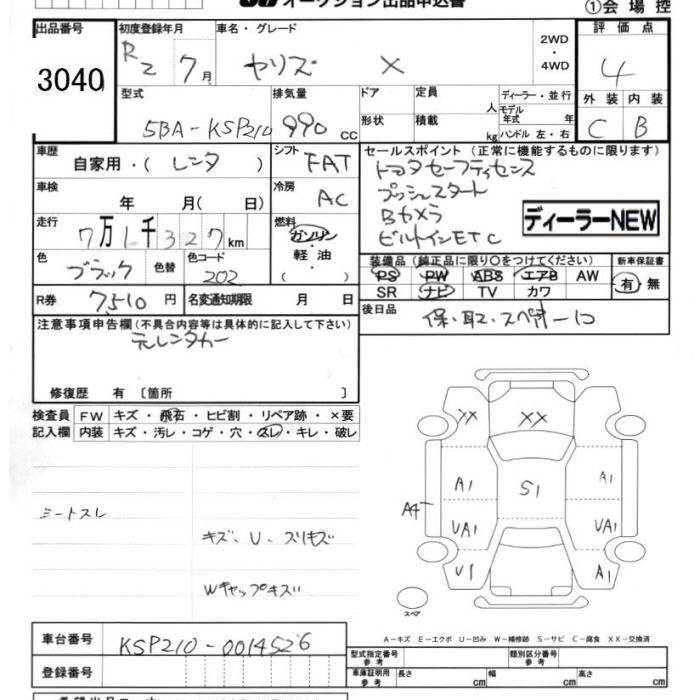 オークション出品申込書
①会場控
出品番号 初度登録年月 車名・グレード 評価点
3040 R2 7月 ヤリス X 2WD・4WD 4
型式 排気量 ドア 定員 人 ディーラー・並行 外装 内装
モデル年式 年
5BA-KSP210 990cc 形状 積載 kg ハンドル 左・右 C B
車歴 シフト セールスポイント (正常に機能するものに限ります)
自家用・(レンタ) FAT トヨタセーフティセンス
車検 年 月(日) 冷房 AC プッシュスタート
Bカメラ
走行 7万1千327km 燃料 ガソリン・軽油・( ) ビルトインETC
ディーラーNEW
色 ブラック 色替 色コード 202
装備品 (純正品に限り○をつけてください) 新車保証書
PS PW ABS エアB AW 有・無
SR ナビ TV カワ
R券 7510円 名変通知期限 月 日
後日品 保・取・スペアキーコ
注意事項申告欄(不具合内容等は具体的に記入して下さい)
元レンタカー
修復歴 有 〔箇所 〕
検査員 FW キズ・飛石・ヒビ割・リペア跡・×要
記入欄 内装 キズ・汚レ・コゲ・穴・スレ・キレ・破レ
XX XX
A1 S1 A1
A4
UA1 UA1
U1 A1
シートスレ
キズ、U、スリキズ
Wキャップキズ
スペア
A-キズ E-エクボ U-凹み W-補修跡 S-サビ C-腐食 XX-交換済
車台番号 KSP210-0014526
型式指定番号 参考 類別区分番号 参考
登録番号
車庫証明用 参考 長さ cm 幅 cm 高さ cm